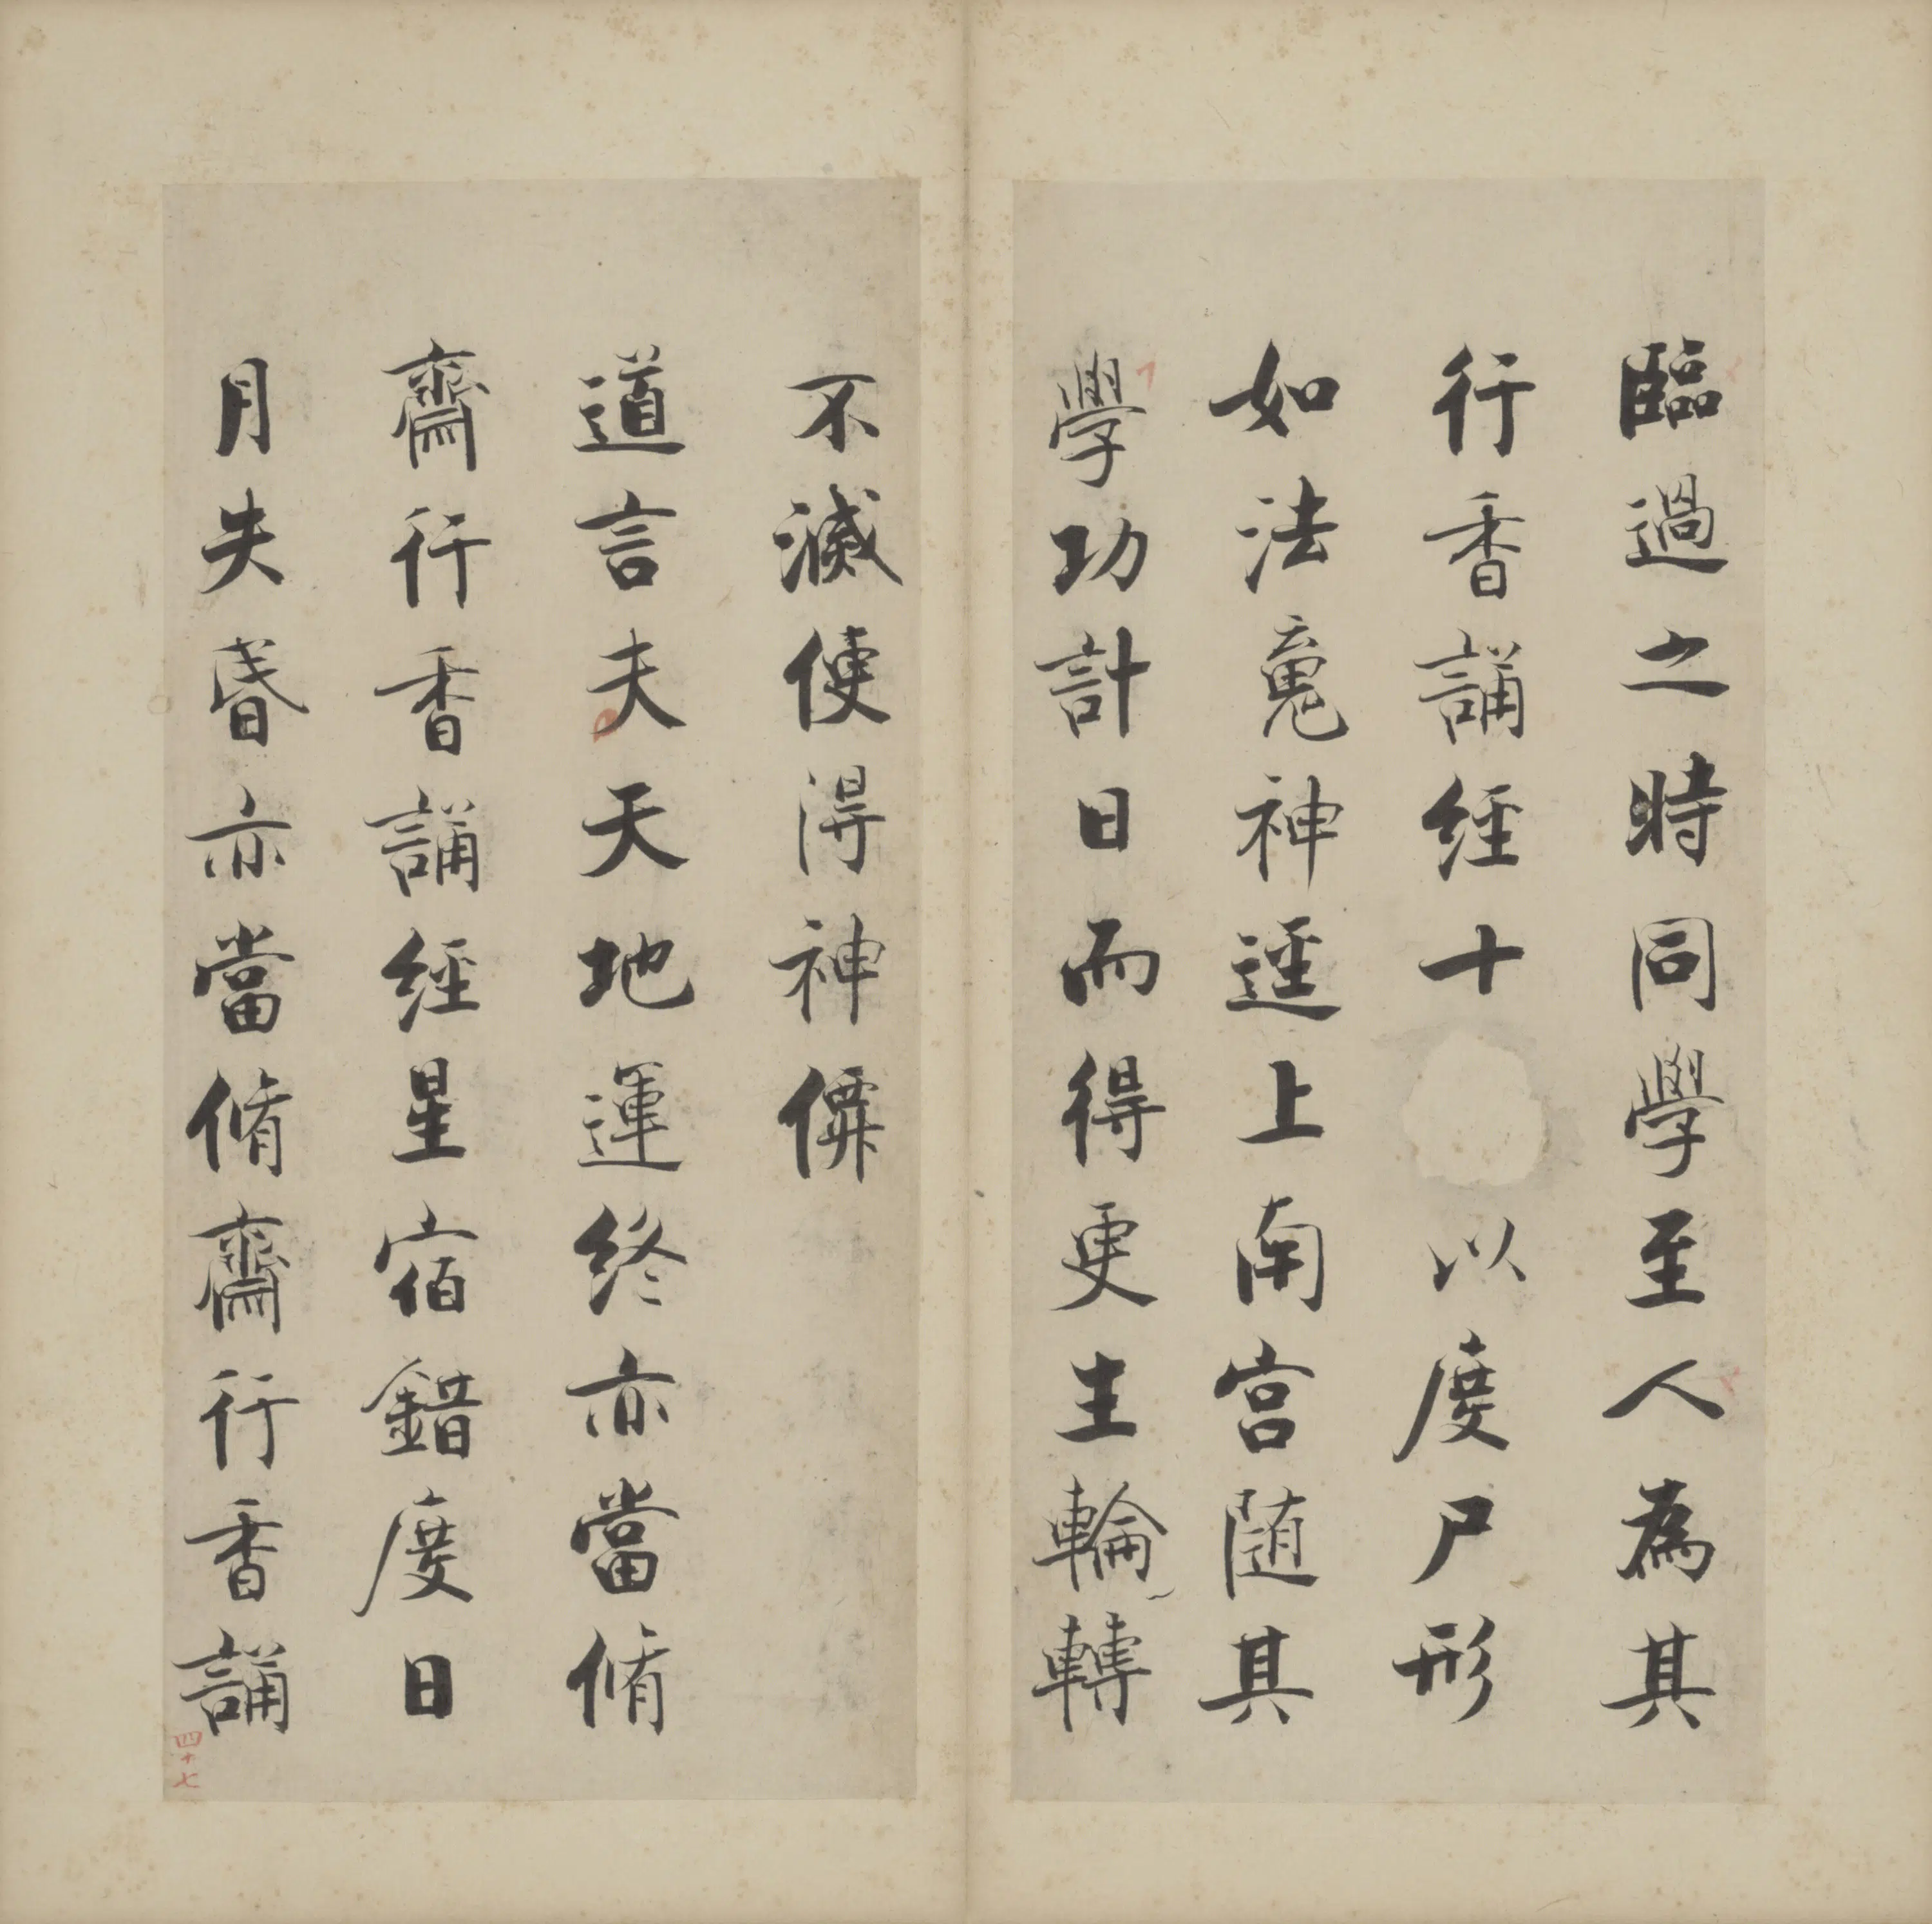 臨過之時同學至人為其
行香誦經十
以度尸形
如法魂神逕上南宮随其
學功計日而得更生輪轉
不滅便得神僊
道言夫天地運終亦當脩
齋行香誦經星宿錯度日
月失昏亦當脩齋行香誦
四十七